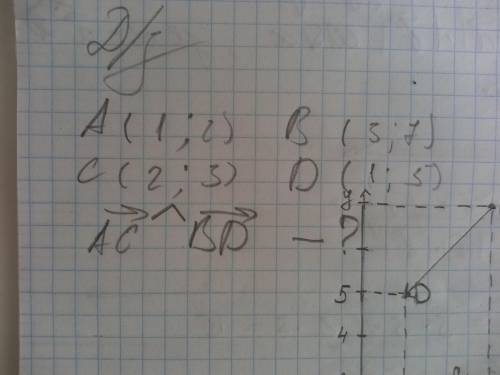 Д/з
A (1;2) B (3;7)
C (2;3) D (1;5)
AC ^ BD — ?
5 D
4